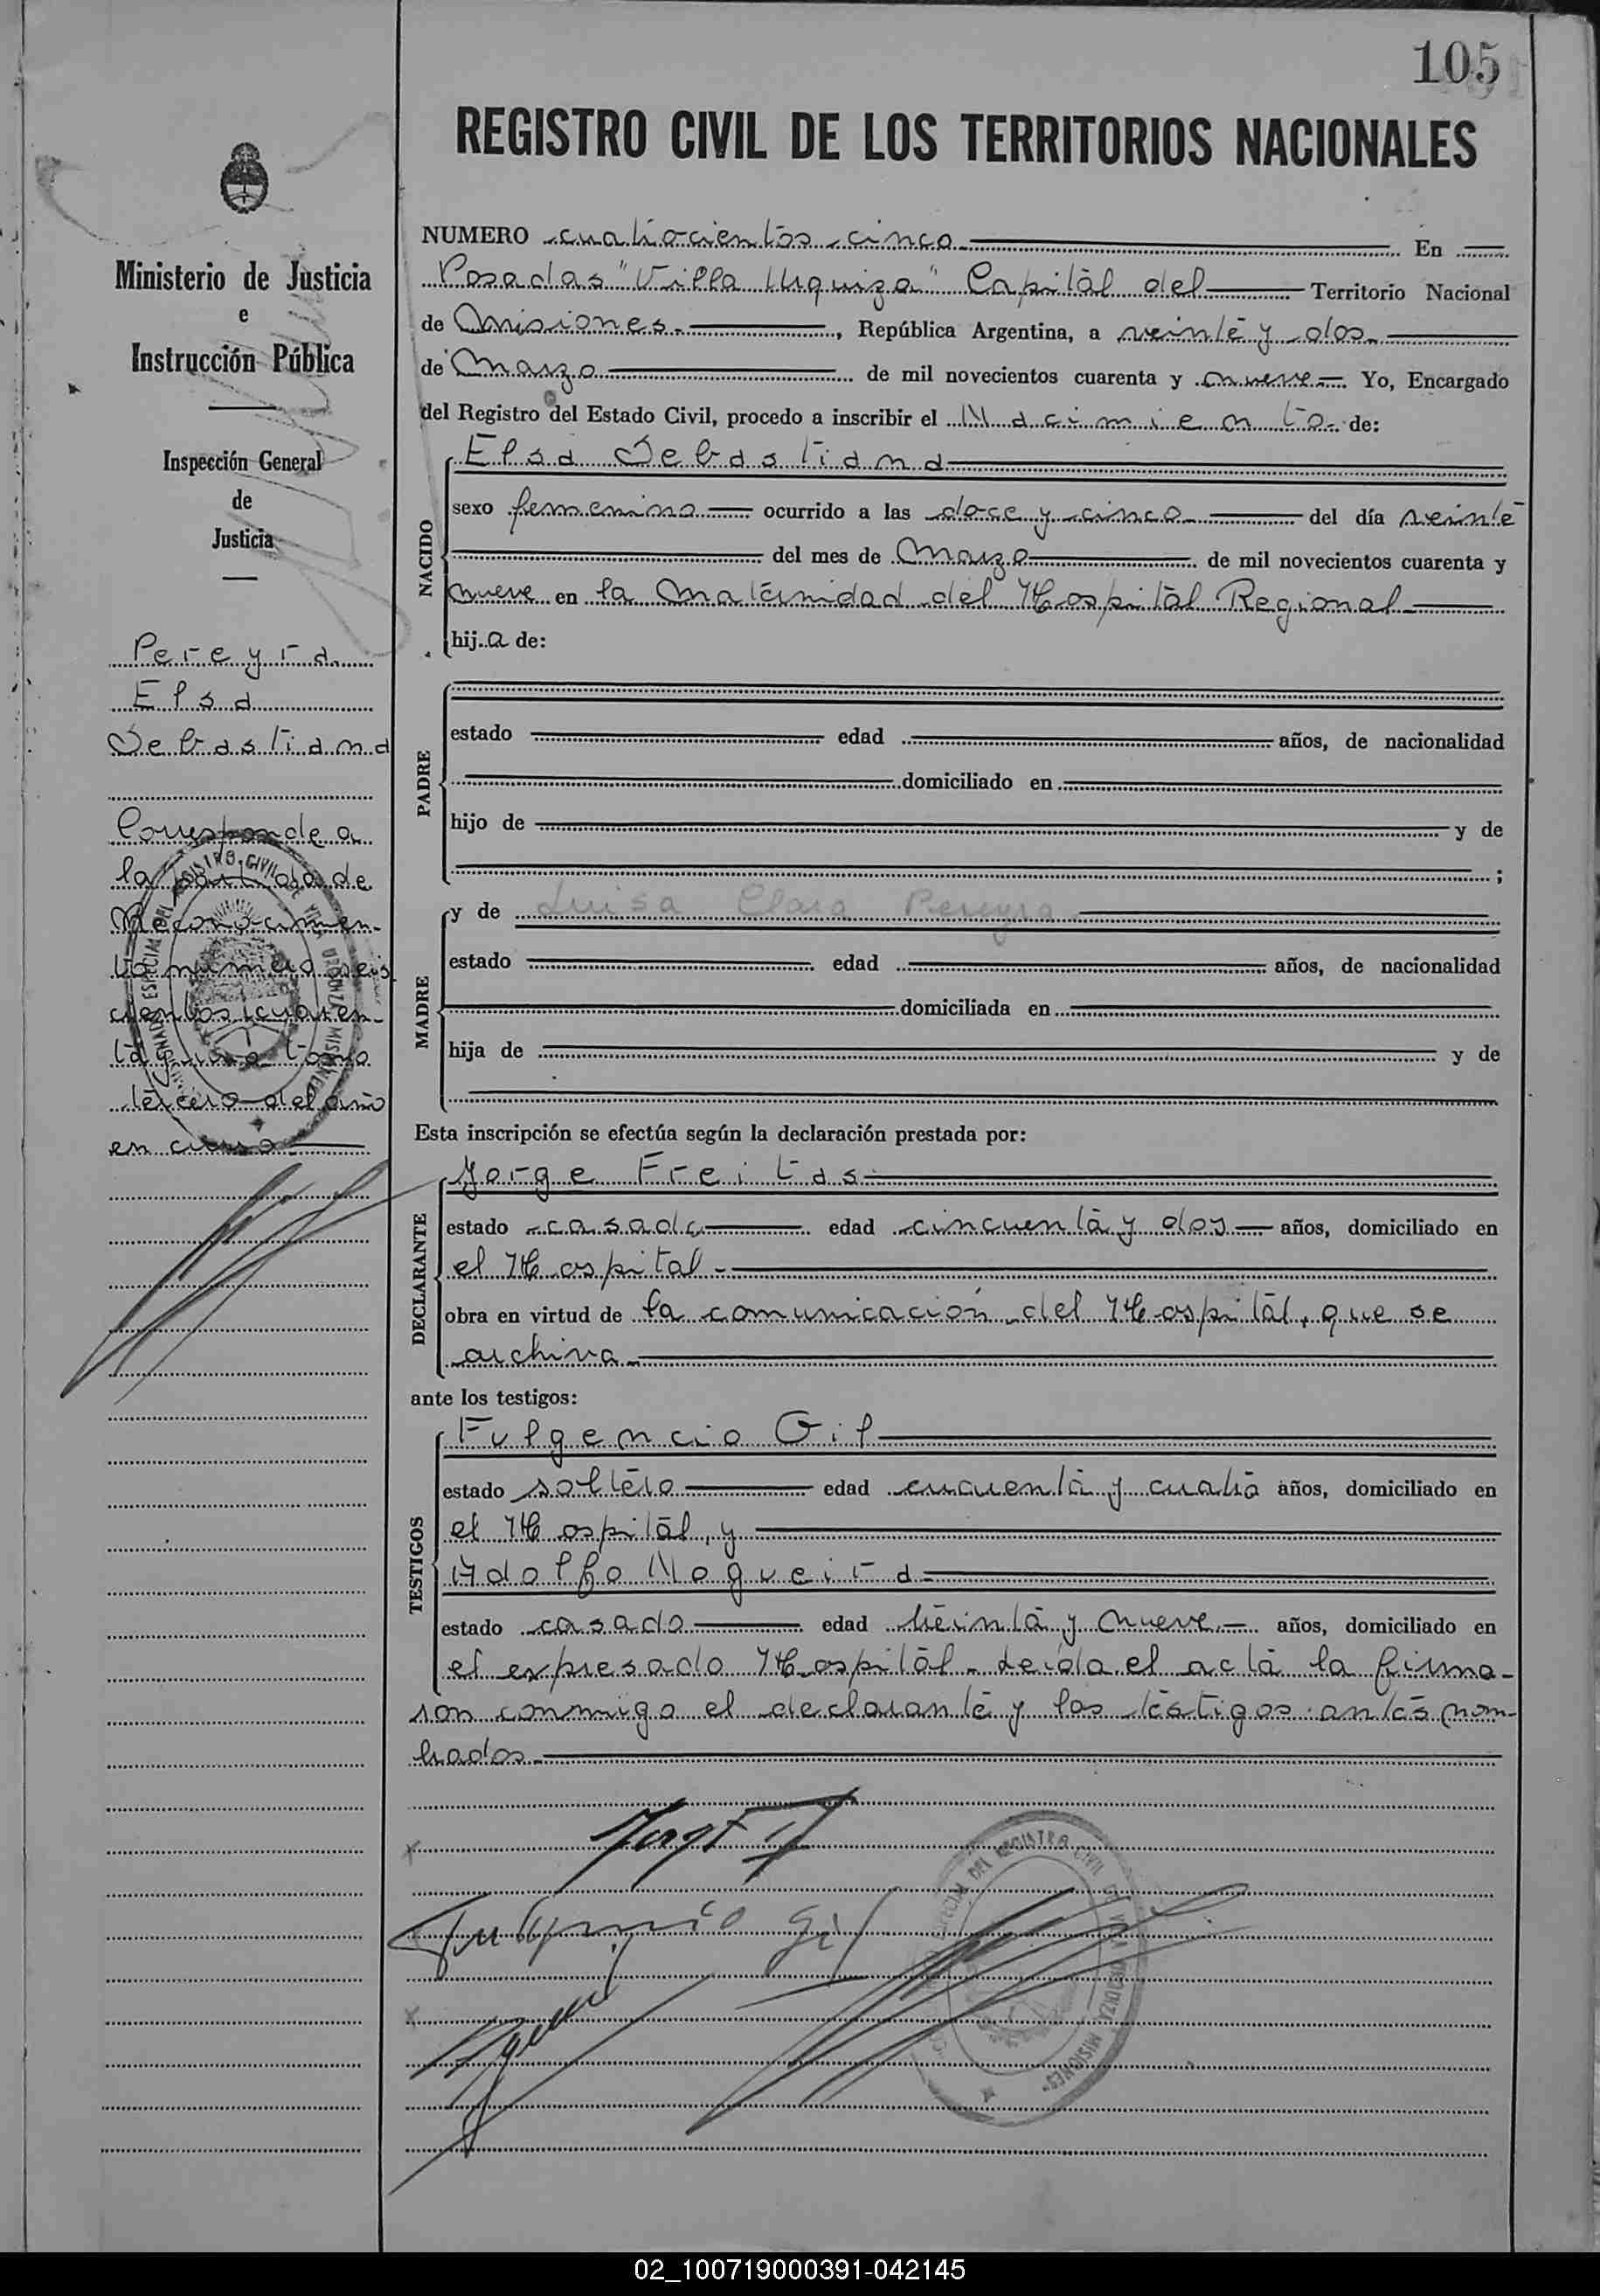 105
REGISTRO CIVIL DE LOS TERRITORIOS NACIONALES
Ministerio de Justicia
e
Instrucción Pública
Inspección General
de
Justicia
Pereyra
Elsa
Sebastiana
Corresponde a
la partida de
Reconocimien-
to número seis
cientos cuaren-
ta y uno tomo
tercero del año
en curso
NUMERO cuatrocientos cinco En
Posadas "Villa Urquiza" Capital del Territorio Nacional
de Misiones, República Argentina, a veinte y dos
de Marzo de mil novecientos cuarenta y nueve Yo, Encargado
del Registro del Estado Civil, procedo a inscribir el Nacimiento de:
NACIDO
Elsa Sebastiana
sexo femenino ocurrido a las doce y cinco del día veinte
del mes de Marzo de mil novecientos cuarenta y
nueve en la Maternidad del Hospital Regional
hij a de:
PADRE
estado edad años, de nacionalidad
domiciliado en
hijo de y de
;
MADRE
y de Luisa Clara Pereyra
estado edad años, de nacionalidad
domiciliada en
hija de y de
Esta inscripción se efectúa según la declaración prestada por:
DECLARANTE
Jorge Freitas
estado casado edad cincuenta y dos años, domiciliado en
el Hospital
obra en virtud de la comunicación del Hospital, que se
archiva
ante los testigos:
TESTIGOS
Fulgencio Gil
estado soltero edad y cuatro años, domiciliado en
el Hospital, y
Adolfo Nogueira
estado casado edad treinta y nueve años, domiciliado en
el expresado Hospital. Leída el acta la firma-
ron conmigo el declarante y los testigos antes nom-
brados
Fulgencio Gil
DEL REGISTRO CIVIL DE VILLA URQUIZA MISIONES
02_100719000391-042145